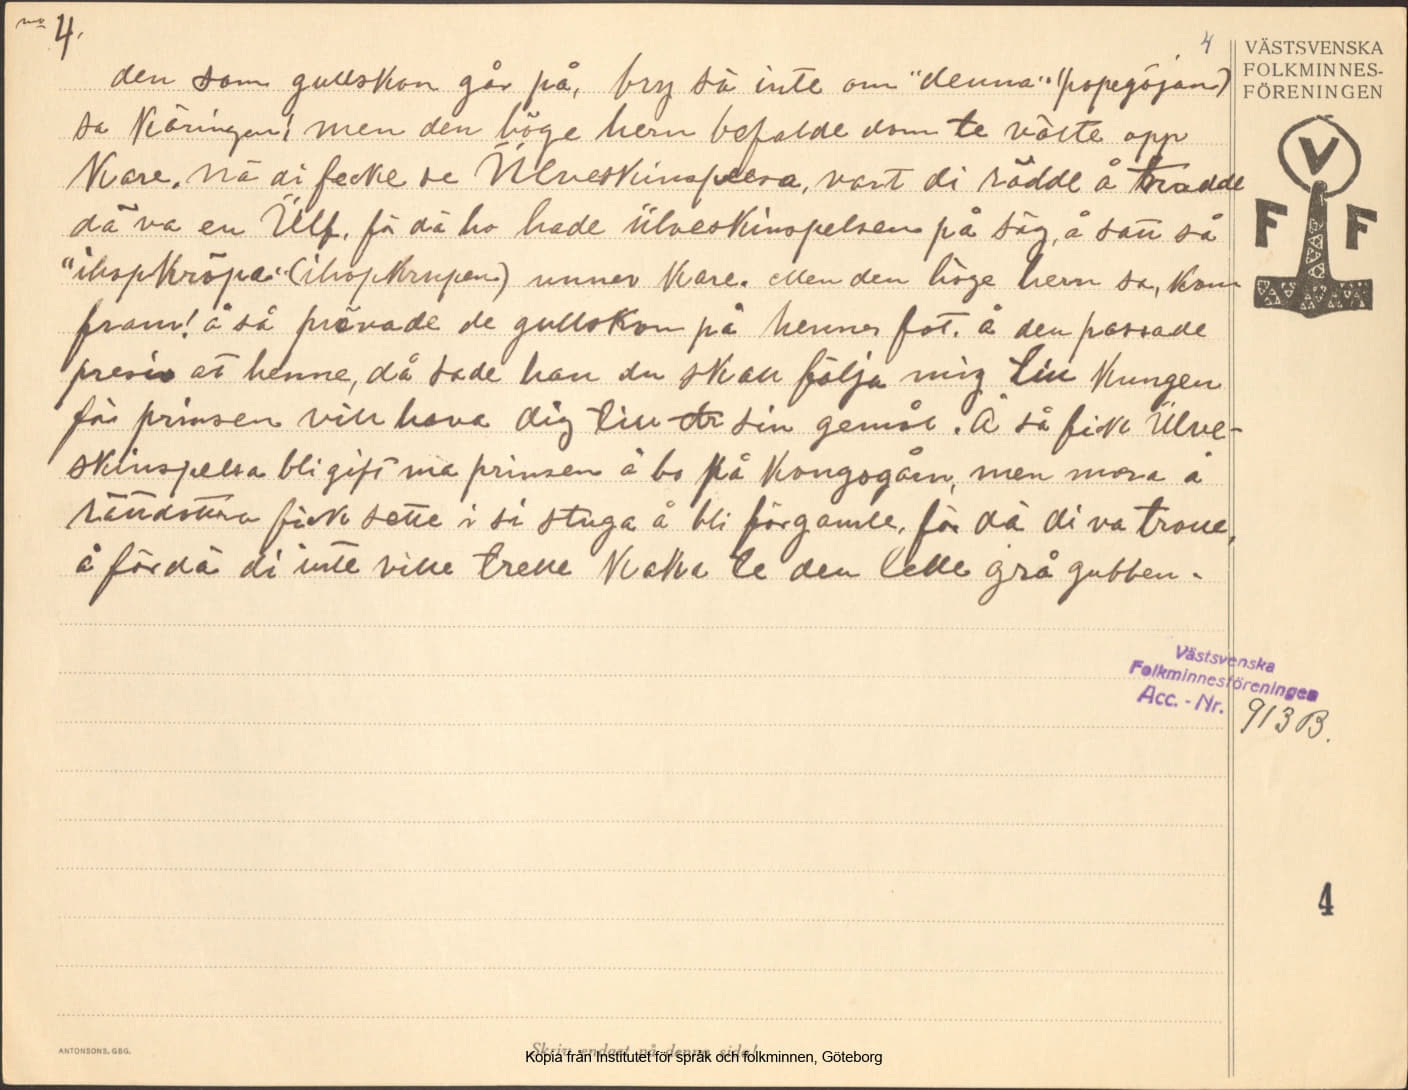 no 4.
4
VÄSTSVENSKA
FOLKMINNES-
FÖRENINGEN
V
F F
den som gullskon går på, bry sä inte om "denna" (popegöjan)
sa Käringen! men den höge hern befalde dom te välte opp
Kare. Nä di fecke se Ülveskinspelsa, vart di rädde å trodde
dä va en Ülf, fö dä ho hade ülveskinspelsen på säg, å satt så
"ihopkröpa" (ihopkrupen) unner Kare. Men den höge hern sa, kom
fram! å så prövade de gullskon på hennes fot. å den passade
presis at henne, då sade han du skall följa mig till Kungen
för prinsen vill hava dig till sin gemål. Å så fick Ülve-
skinspelsa bli gift mä prinsen å bo på Kongsgåln, men mora å
rättdottra fick sette i si stuga å bli förgamle, för dä di va
å fördä di inte ville Kaka te den lelle grå gubben.
Västsvenska
Folkminnesföreningen
Acc. - Nr. 913 B.
4
ANTONSONS, GBG.
Skriv endast på denna sida!
Kopia från Institutet för språk och folkminnen, Göteborg